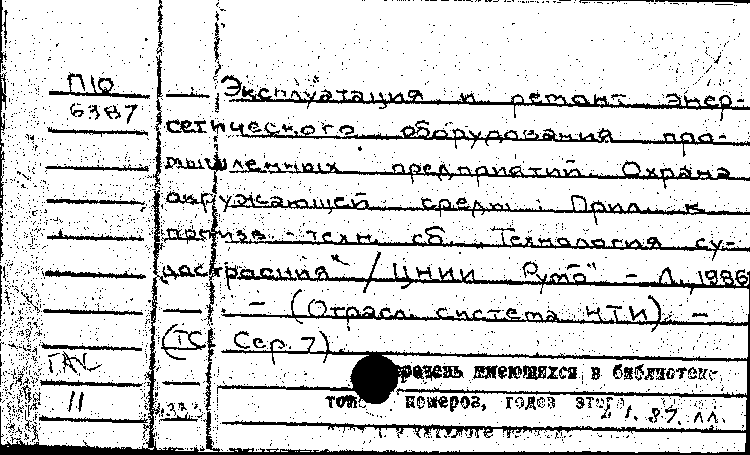 П10
6387
Эксплуатация и ремонт энер-
гетического оборудования про-
мышленных предприятий. Охрана
окружающей среды: Прил. к
произв.-техн. сб. „Технология су-
достроения" / ЦНИИ „Румб" - Л., 1986
- (Отрасл. система НТИ). -
(ТС Сер. 7).
11
имеющихся в библиотеке
номеров, годов этого
в каталоге